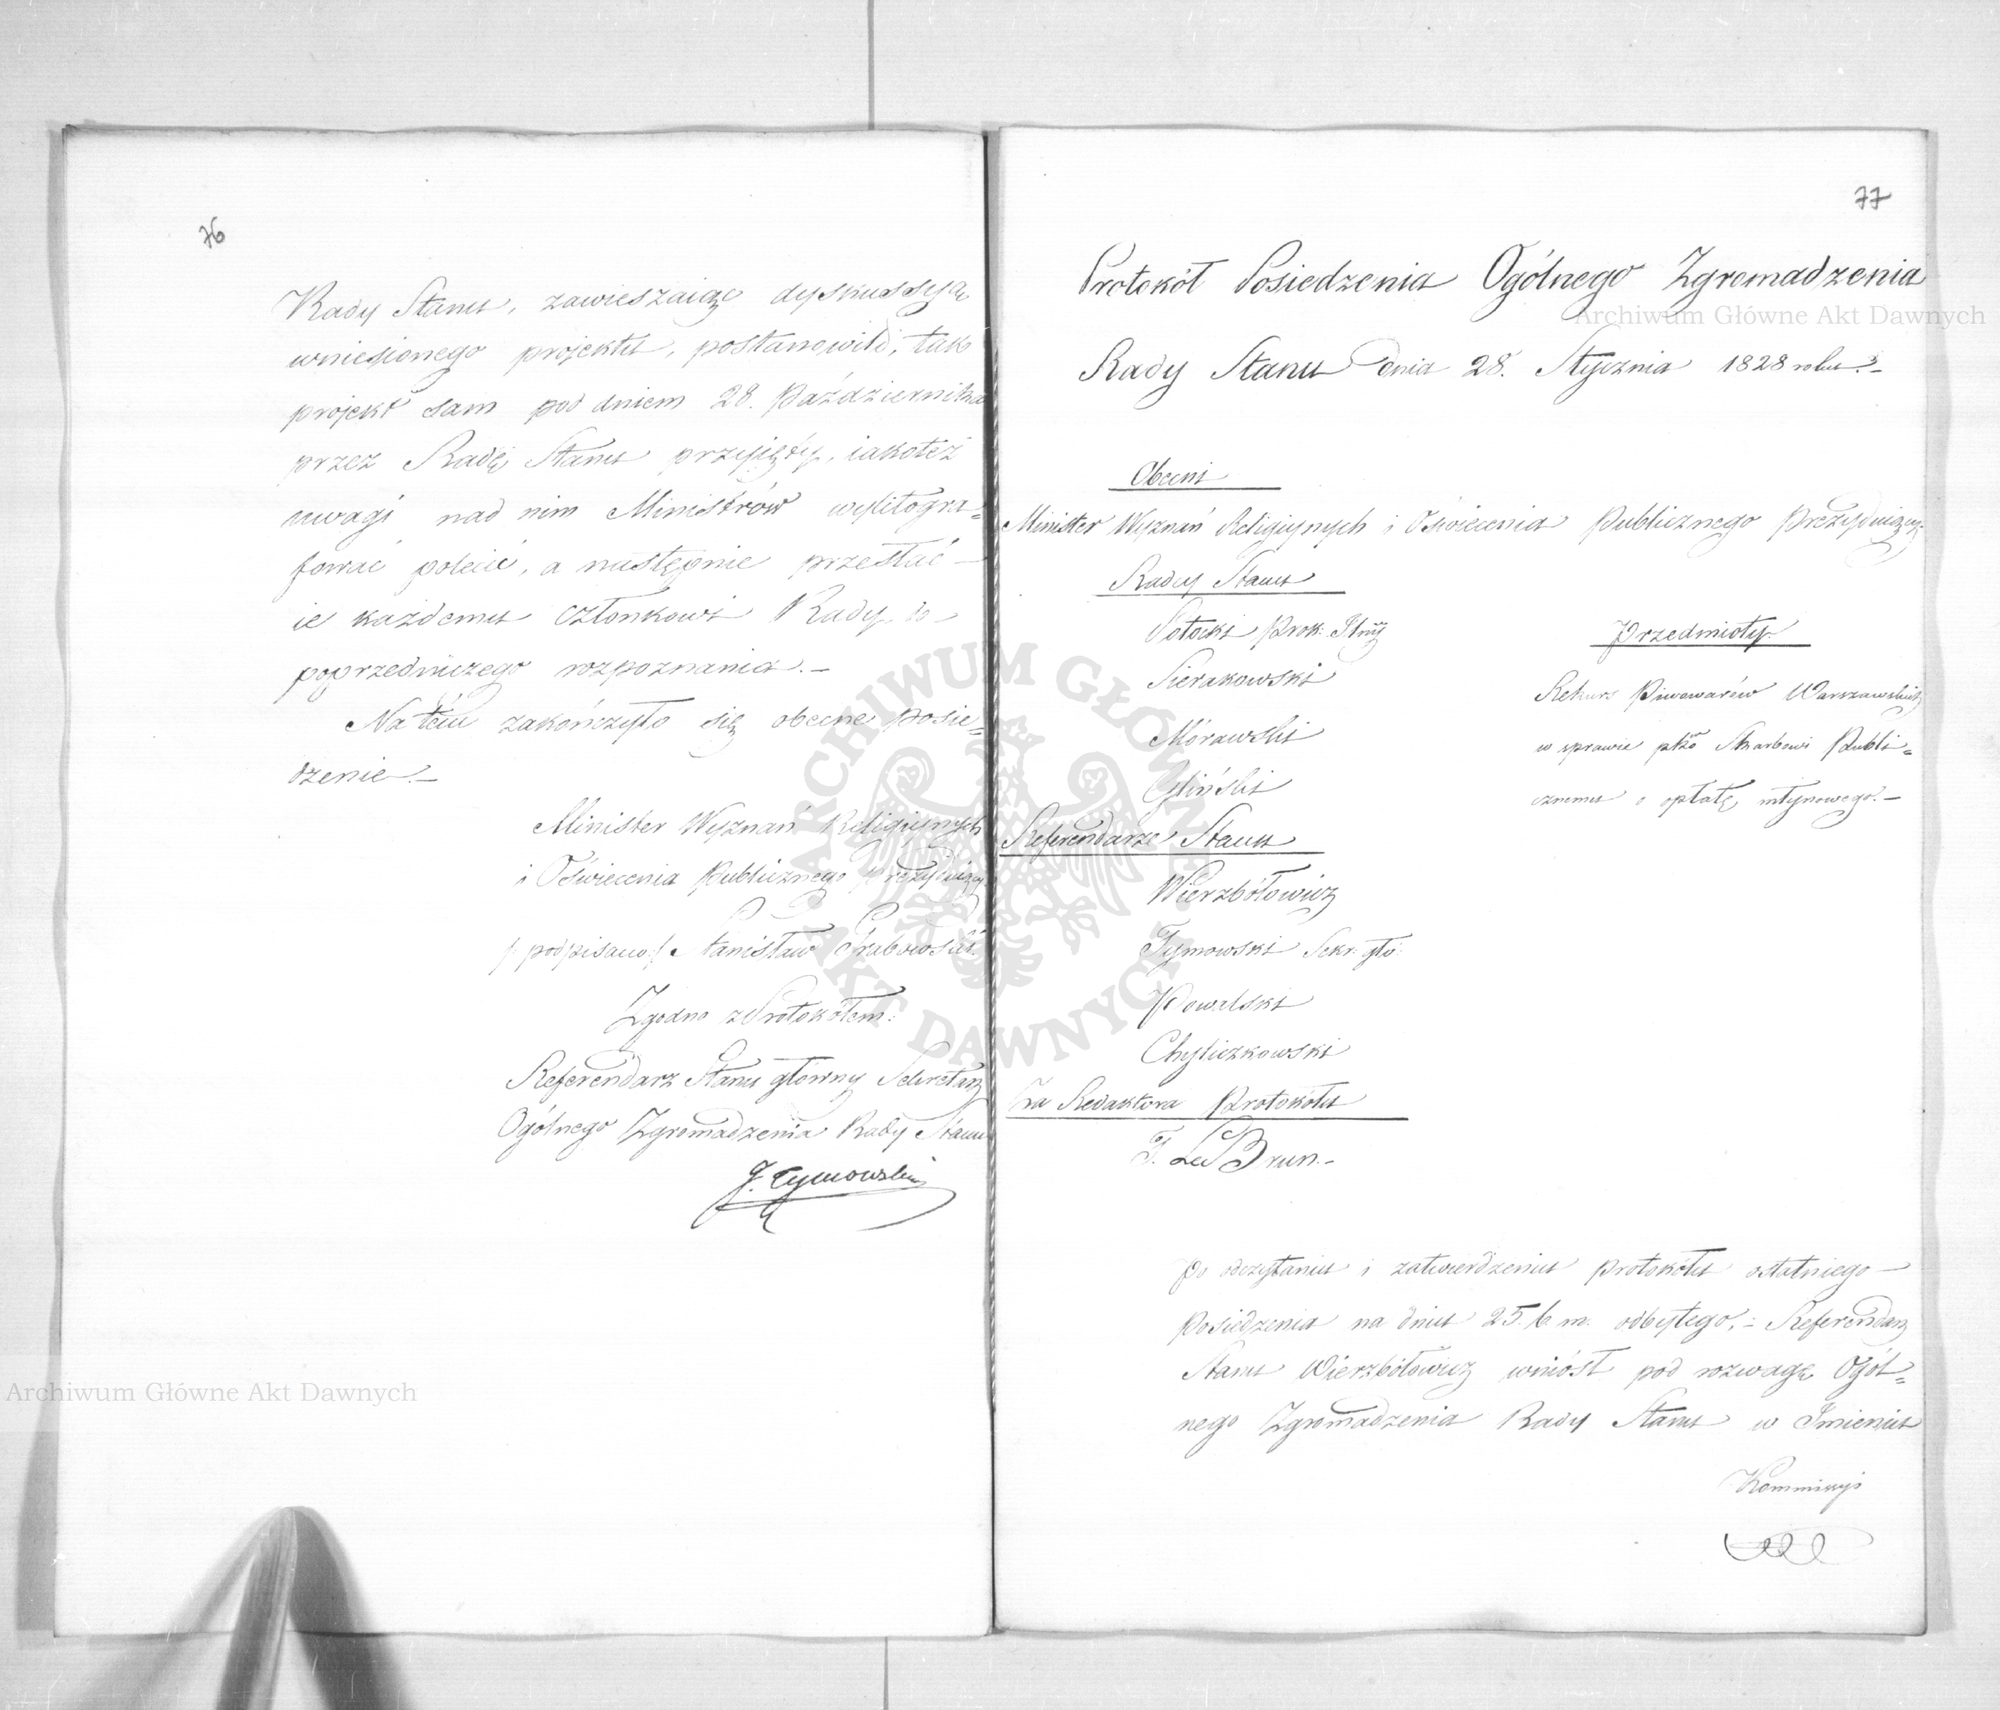 76
Rady Stanu, zawieszaiąc dyskussyą
wniesionego projektu, postanowiło, tak
projekt sam pod dniem 28. Października
przez Radę Stanu przyjęty, iakoteż
uwagi nad nim Ministrów wylitogra=
fować polecić, a następnie przesłać —
ie każdemu członkowi Rady do —
poprzedniczego rozpoznania. —
Na tém zakończyło się obecne Posie=
dzenie. —
Minister Wyznań Religiynych
i Oświecenia Publicznego Prezyduiący
/ podpisano / Stanisław Grabowski.
Zgodno z Protokółem:
Referendarz Stanu główny Sekretarz
Ogólnego Zgromadzenia Rady Stanu
J. Tymowski
77
Protokół Posiedzenia Ogólnego Zgromadzenia
Rady Stanu dnia 28. Stycznia 1828 roku. —
Obecni
Minister Wyznań Religiynych i Oświecenia Publicznego Prezyduiący
Radcy Stanu
Potocki Prok:
Sierakowski
Morawski
Gliński
Referendarze Stanu
Wierzbołowicz
Tymowski Sekr: głó:
Kowalski
Chyliczkowski
Za Redaktora Protokółu
F. Le Brun. —
Przedmioty
Rekurs Piwowarów Warszawskich
w sprawie pko Skarbowi Publi=
cznemu o opłatę młynowego. —
Po odczytaniu i zatwierdzeniu protokółu ostatniego —
Posiedzenia na dniu 25. b. m. odbytego, — Referendarz
Stanu Wierzbołowicz wniósł pod rozwagę Ogól=
nego Zgromadzenia Rady Stanu w Imieniu
Kommissyi
Archiwum Główne Akt Dawnych
Archiwum Główne Akt Dawnych
ARCHIWUM GŁÓWNE AKT DAWNYCH